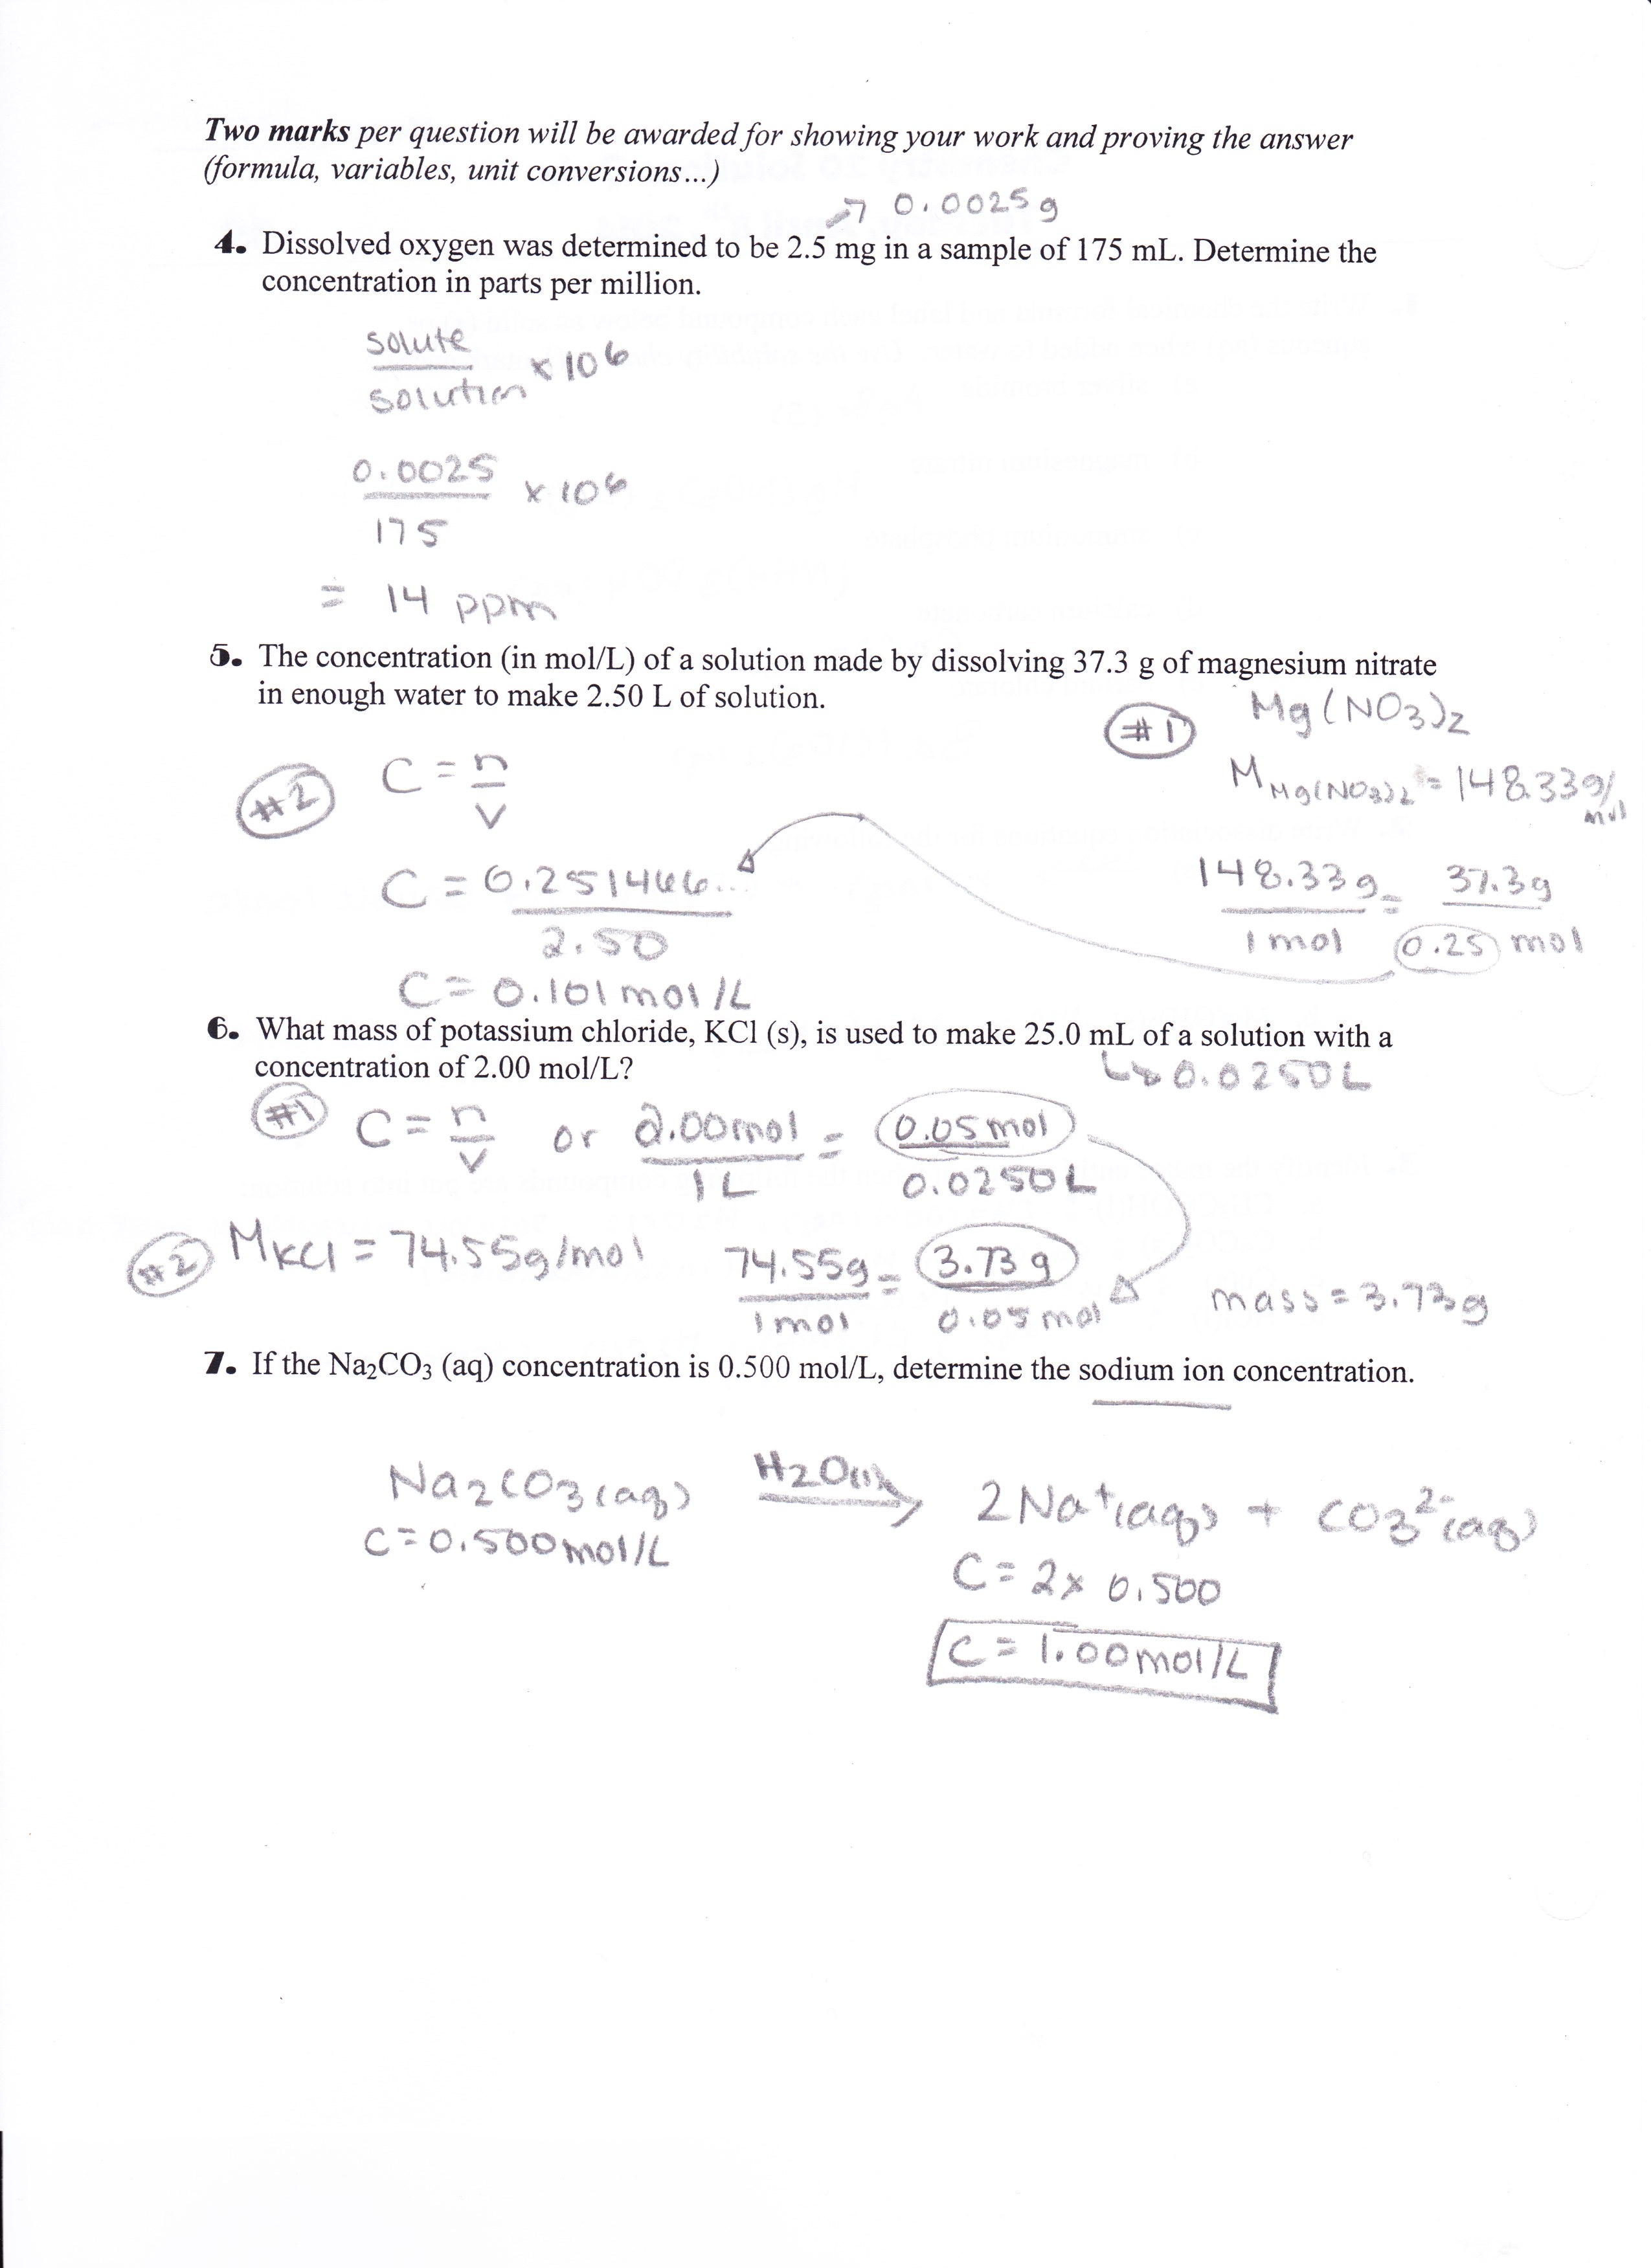 Two marks per question will be awarded for showing your work and proving the answer
(formula, variables, unit conversions...)
→ 0.0025g
4. Dissolved oxygen was determined to be 2.5 mg in a sample of 175 mL. Determine the
concentration in parts per million.
solute
solution × 10⁶
0.0025
175 × 10⁶
= 14 ppm
5. The concentration (in mol/L) of a solution made by dissolving 37.3 g of magnesium nitrate
in enough water to make 2.50 L of solution.
#1 Mg(NO3)2
M Mg(NO3)2 = 148.33g/mol
148.33g = 37.3g
1 mol 0.25 mol
#2 C = n
V
C = 0.251466...
2.50
C = 0.101 mol/L
6. What mass of potassium chloride, KCl (s), is used to make 25.0 mL of a solution with a
concentration of 2.00 mol/L?
↳ 0.0250L
#1 C = n or 2.00mol = 0.05mol
V 1L 0.0250L
#2 MKCl = 74.55g/mol 74.55g = 3.73g
1mol 0.05mol
mass = 3.73g
7. If the Na₂CO₃ (aq) concentration is 0.500 mol/L, determine the sodium ion concentration.
Na2CO3(aq) H2O(l) → 2Na⁺(aq) + CO3²⁻(aq)
C = 0.500mol/L
C = 2 × 0.500
C = 1.00mol/L